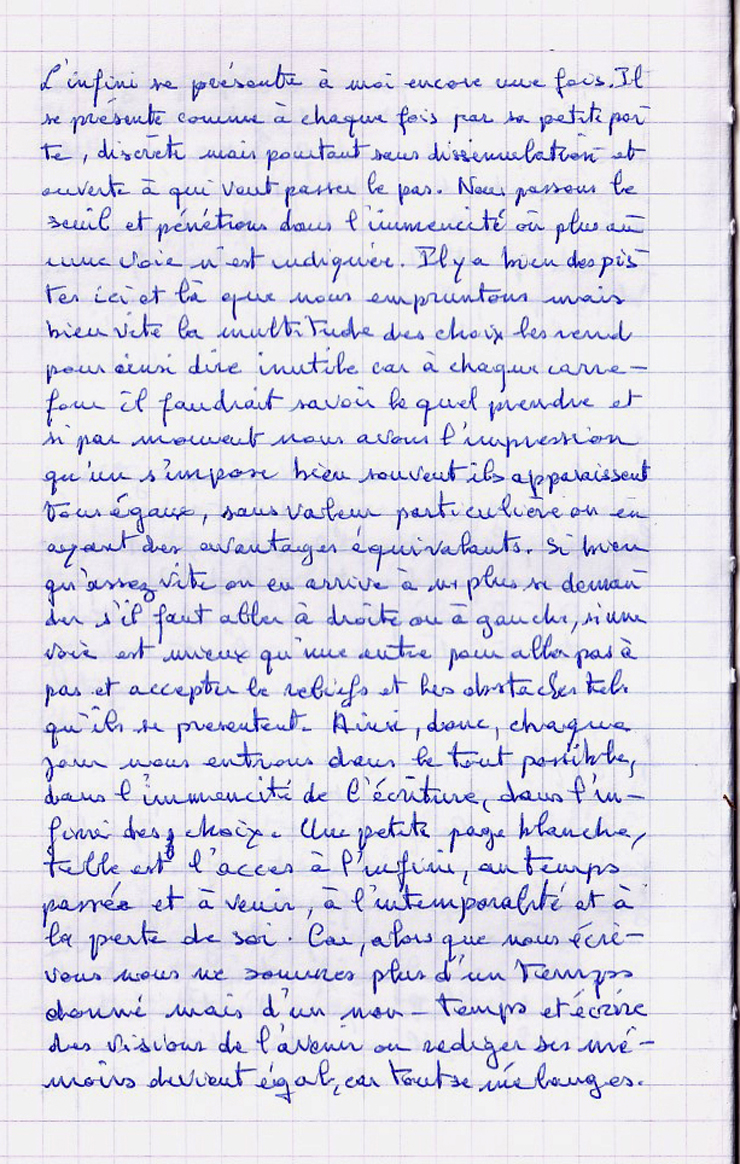 L'infini se présente à moi encore une fois. Il
se présente comme à chaque fois par sa petite por
te, discrète mais pourtant sans dissimulation et
ouverte à qui veut passer le pas. Nous passons le
seuil et pénétrons dans l'immencité où plus au
cune voie n'est indiquée. Il y a bien des pis
tes ici et là que nous empruntons mais
bien vite la multitude des choix les rend
pour ainsi dire inutile car à chaque carre-
four il faudrait savoir lequel prendre et
si par moment nous avons l'impression
qu'un s'impose bien souvent ils apparaissent
tous égaux, sans valeur particulière ou en
ayant des avantages équivalents. Si bien
qu'assez vite on en arrive à ne plus se deman
der s'il faut aller à droite ou à gauche, si une
voie est mieux qu'une autre pour aller pas à
pas et accepter le reliefs et les obstacles tels
qu'ils se presentent. Ainsi, donc, chaque
jour nous entrons dans le tout possible,
dans l'immencité de l'écriture, dans l'in-
fini des choix. Une petite page blanche,
telle est l'acces à l'infini, au temps
passée et à venir, à l'intemporalité et à
la perte de soi. Car, alors que nous écri-
vons nous ne sommes plus d'un temps
donné mais d'un non-temps et écrire
des visions de l'avenir ou rediger ses mé-
moirs devient égal, car tout se mélanges.